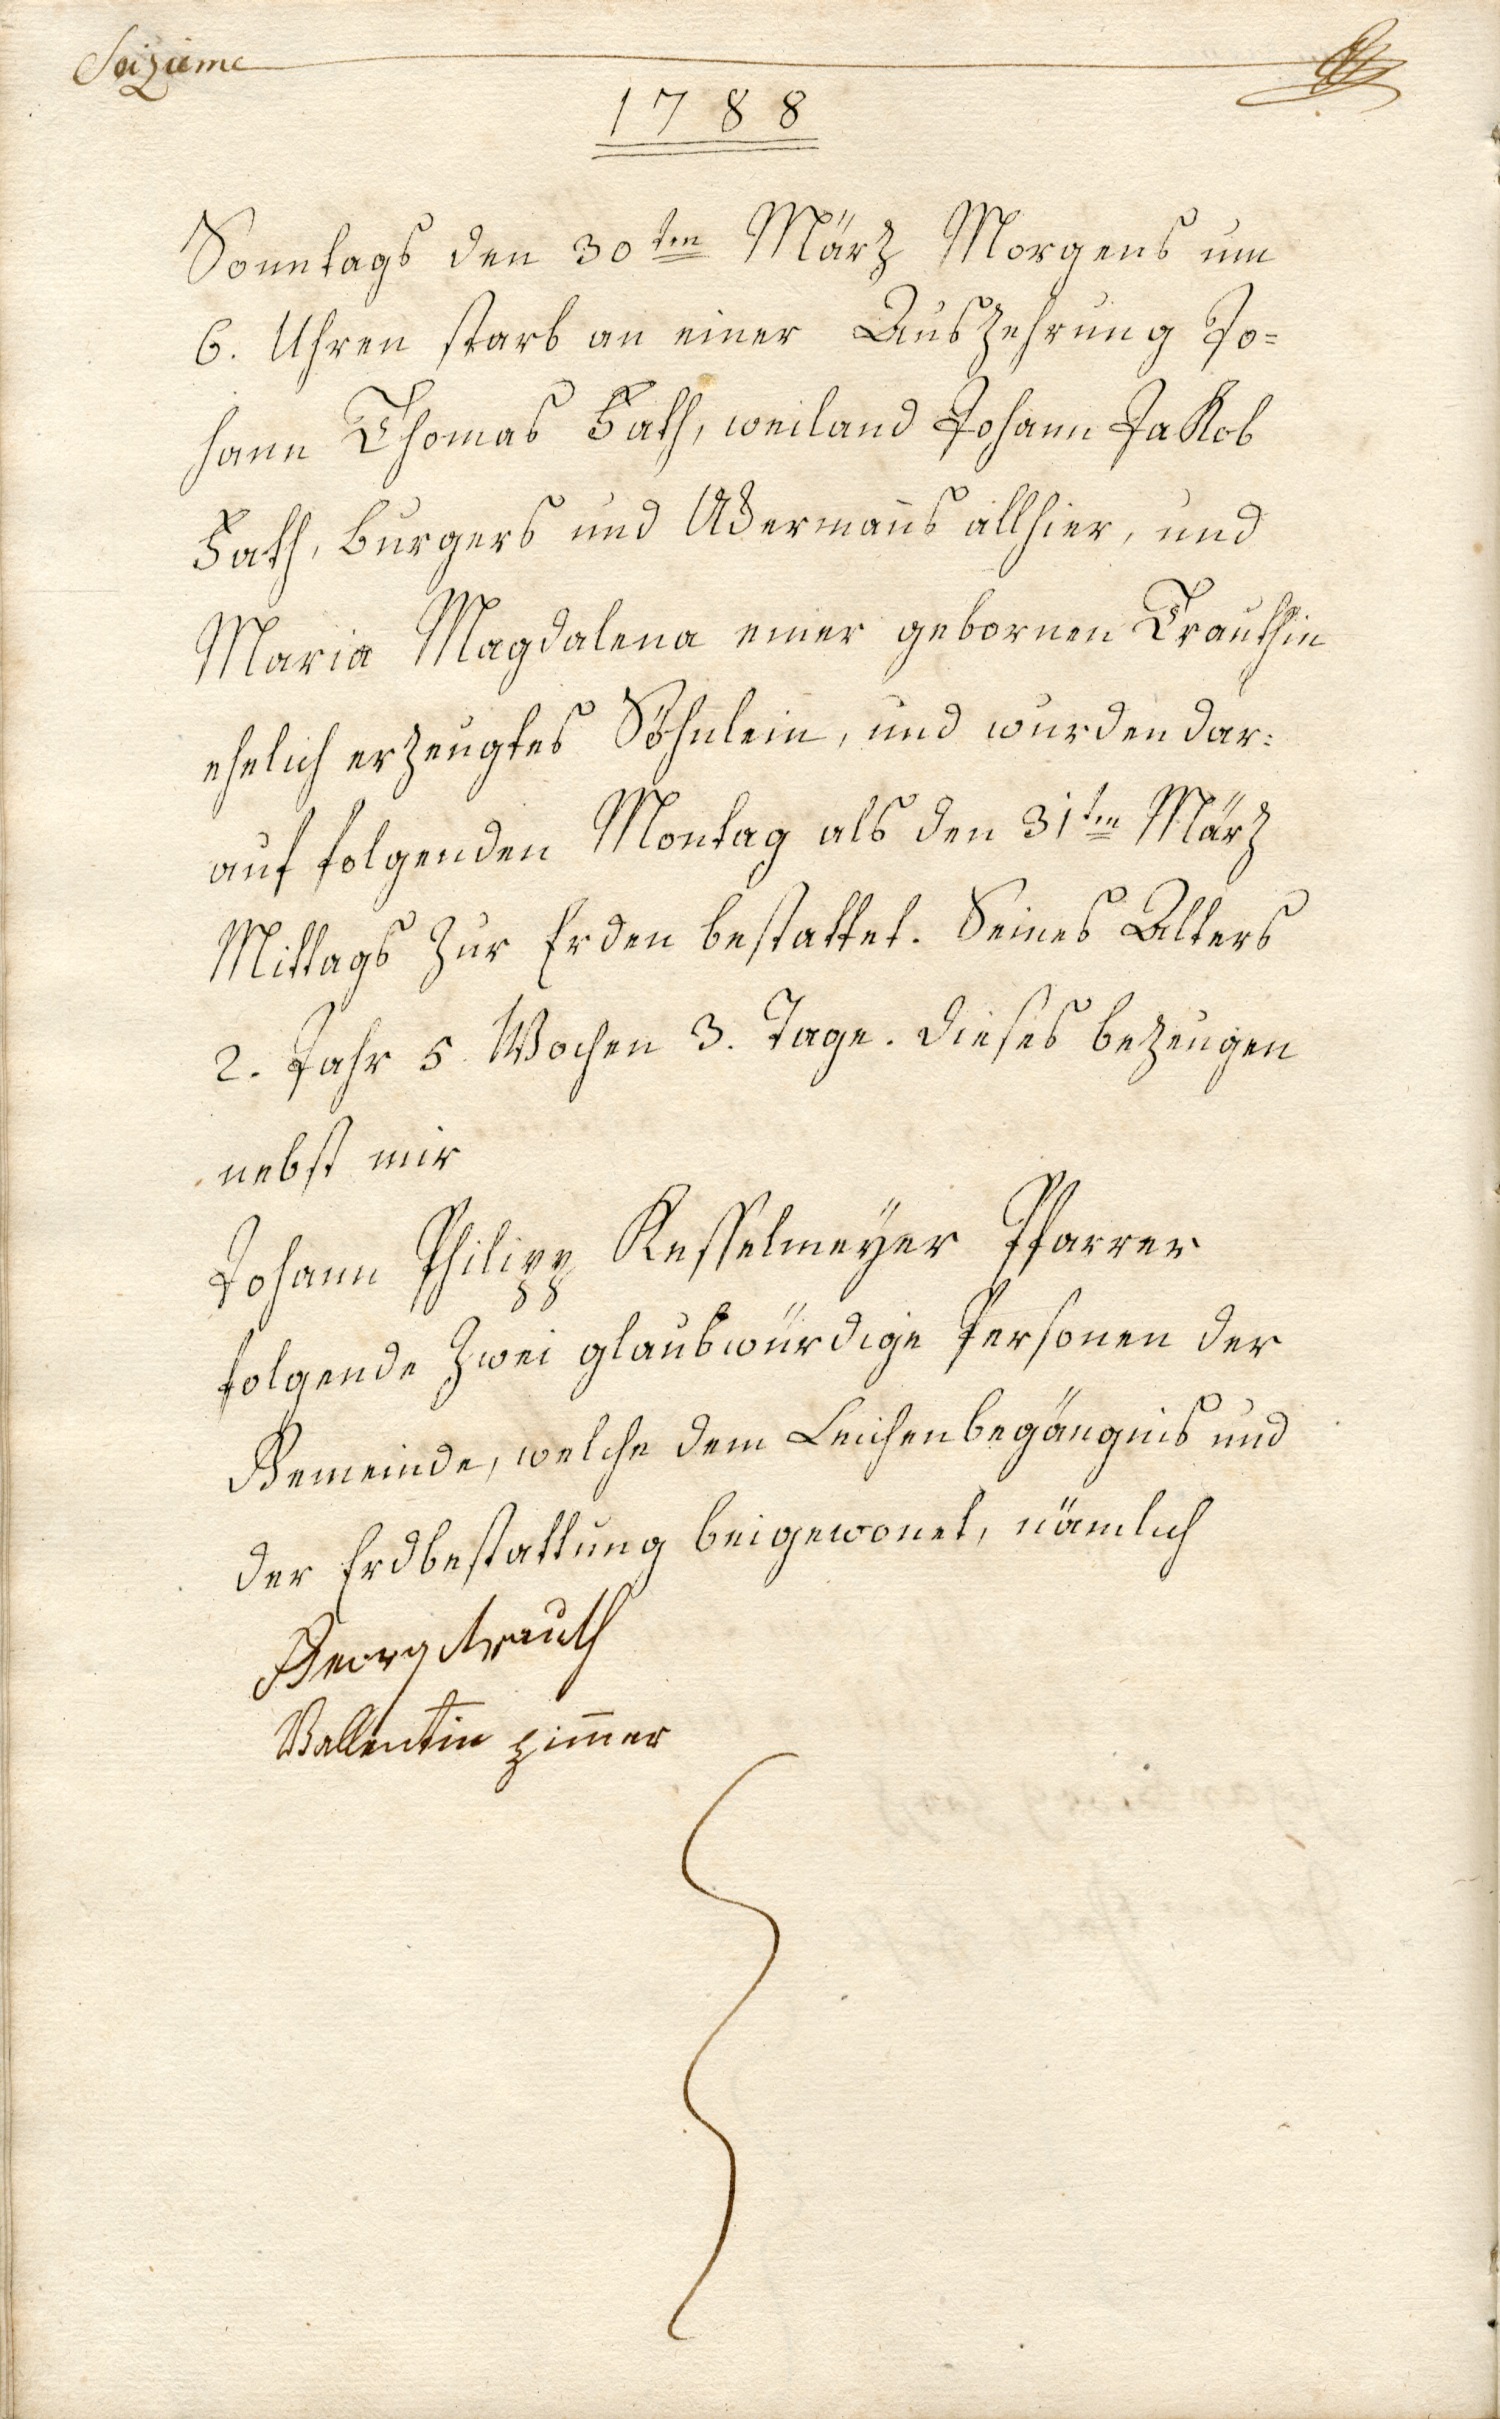 Seizieme
1788
Sonntags den 30ten März Morgens um
6. Uhren starb an einer Auszehrung Jo=
hann Thomas Fath, weiland Johann Jakob
Fath, burgers und Akerman̄s allhier, und
Maria Magdalena einer gebornen Trauthin
ehelich erzeugtes Söhnlein, und wurden dar=
auf folgenden Montag als den 31ten März
Mittags zur Erden bestattet. Seines Alters
2. Jahr 5 Wochen 3. Tage. Dieses bezeugen
nebst mir
Johann Philipp Kesselmeÿer Pfarrer
folgende zwei glaubwürdige Personen der
Gemeinde, welche dem Leichenbegängnis und
der Erdbestattung beigewonet, nämlich
Georg trauth
Vallentin zim̄er